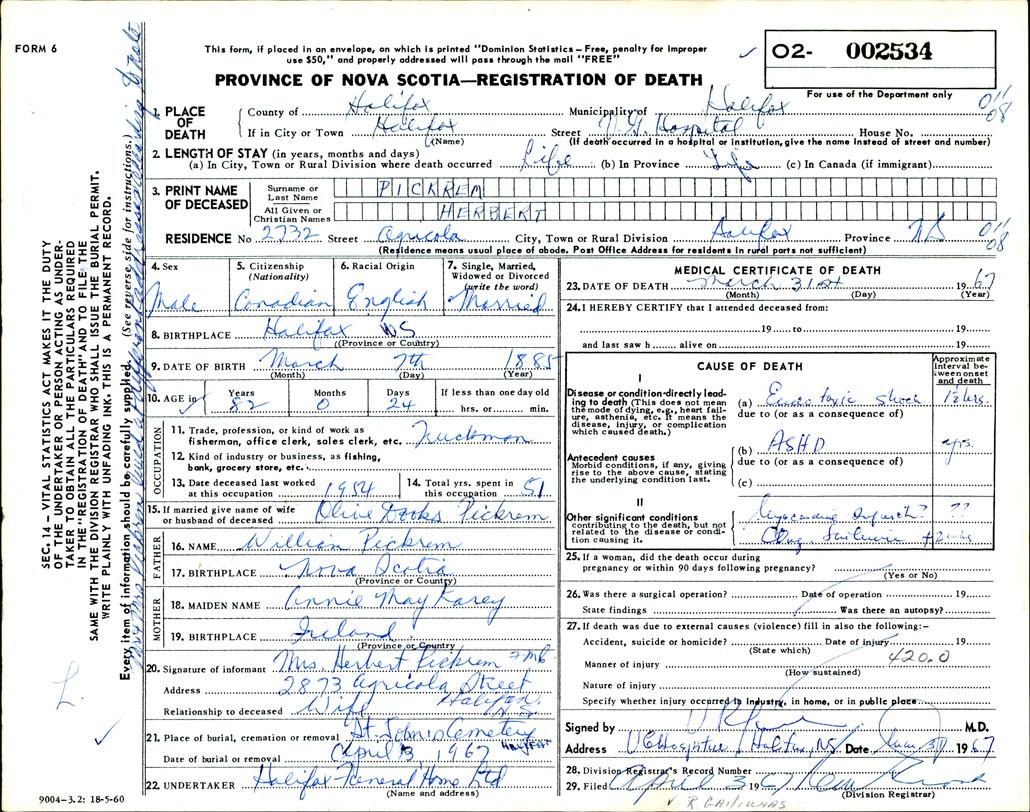 FORM 6
This form, if placed in an envelope, on which is printed "Dominion Statistics – Free, penalty for improper
use $50," and properly addressed will pass through the mail "FREE"
PROVINCE OF NOVA SCOTIA—REGISTRATION OF DEATH
02- 002534
For use of the Department only
011
08
1. PLACE OF DEATH
County of Halifax Municipality of Halifax
If in City or Town Halifax Street V.G. Hospital House No.
(Name) (If death occurred in a hospital or institution, give name instead of street and number)
2. LENGTH OF STAY (in years, months and days)
(a) In City, Town or Rural Division where death occurred Life (b) In Province Life (c) In Canada (if immigrant)
3. PRINT NAME OF DECEASED
Surname or Last Name PICKREM
All Given or Christian Names HERBERT
RESIDENCE No 2732 Street Agricola City, Town or Rural Division Halifax Province NS
011
08
(Residence means usual place of abode. Post Office Address for residents in rural parts not sufficient)
4. Sex Male
5. Citizenship (Nationality) Canadian
6. Racial Origin English
7. Single, Married, Widowed or Divorced (write the word) Married
8. BIRTHPLACE Halifax NS
(Province or Country)
9. DATE OF BIRTH March 7th 1885
(Month) (Day) (Year)
10. AGE in Years 82 Months 0 Days 24 If less than one day old hrs. or min.
OCCUPATION
11. Trade, profession, or kind of work as
fisherman, office clerk, sales clerk, etc. Truckman
12. Kind of industry or business, as fishing,
bank, grocery store, etc.
13. Date deceased last worked at this occupation 1954
14. Total yrs. spent in this occupation 51
15. If married give name of wife or husband of deceased Olive Hooks Pickrem
FATHER
16. NAME William Pickrem
17. BIRTHPLACE Nova Scotia
(Province or Country)
MOTHER
18. MAIDEN NAME Annie May Karey
19. BIRTHPLACE Ireland
(Province or Country)
20. Signature of informant Mrs. Herbert Pickrem
Address 2873 Agricola Street
Halifax, N.S.
Relationship to deceased Wife
21. Place of burial, cremation or removal St. John's Cemetery
Halifax
Date of burial or removal April 3 1967
22. UNDERTAKER Halifax Funeral Home Ltd
(Name and address)
9004-3.2: 18-5-60
MEDICAL CERTIFICATE OF DEATH
23. DATE OF DEATH March 31st 1967
(Month) (Day) (Year)
24. I HEREBY CERTIFY that I attended deceased from:
19 to 19
and last saw h alive on 19
CAUSE OF DEATH
Approximate interval between onset and death
I
Disease or condition directly leading to death (This does not mean the mode of dying, e.g., heart failure, asthenia, etc. It means the disease, injury, or complication which caused death.)
(a) Endotoxic Shock 1½ hrs.
due to (or as a consequence of)
Antecedent causes
Morbid conditions, if any, giving rise to the above cause, stating the underlying condition last.
(b) ASHD yrs.
due to (or as a consequence of)
(c)
II
Other significant conditions contributing to the death, but not related to the disease or condition causing it.
Myocardial Infarct? ??
Cong failure
25. If a woman, did the death occur during
pregnancy or within 90 days following pregnancy?
(Yes or No)
26. Was there a surgical operation? Date of operation 19
State findings Was there an autopsy?
27. If death was due to external causes (violence) fill in also the following:–
Accident, suicide or homicide? Date of injury 19
(State which) 420.0
Manner of injury
(How sustained)
Nature of injury
Specify whether injury occurred in industry, in home, or in public place
Signed by M.D.
Address V G Hospital, Halifax, NS Date Mar 31 1967
28. Division Registrar's Record Number
29. Filed April 3 1967
(Division Registrar)
SEC. 14 – VITAL STATISTICS ACT MAKES IT THE DUTY
OF THE UNDERTAKER OR PERSON ACTING AS UNDER-
TAKER TO OBTAIN ALL THE PARTICULARS REQUIRED
IN THE "REGISTRATION OF DEATH" AND TO FILE THE
SAME WITH THE DIVISION REGISTRAR WHO SHALL ISSUE THE BURIAL PERMIT.
WRITE PLAINLY WITH UNFADING INK. THIS IS A PERMANENT RECORD.
Every item of information should be carefully supplied. (See reverse side for instructions.)
L.